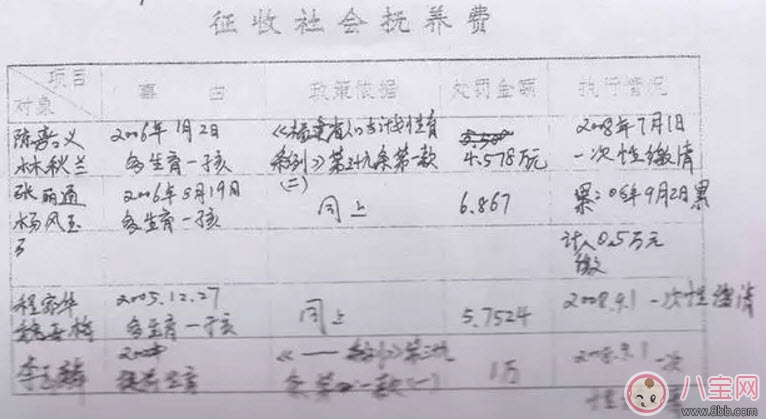 征收社会抚养费
项目
对象
事由
政策依据
处罚金额
执行情况
陈嘉义
林秋兰
2006年1月2日
多生育一孩
《福建省人口与计划生育
条例》第三十九条第一款
(二)
4.578万元
2008年7月1日
一次性缴清
张丽通
杨风玉
2006年8月19日
多生育一孩
同上
6.867
累:06年9月2日累
计入0.5万元
缴
程家华
2005.12.27
多生育一孩
同上
5.7524
2008.9.1 一次性缴清
提前生育
1万
2008.9.1 一次
八宝网
www.8bb.com